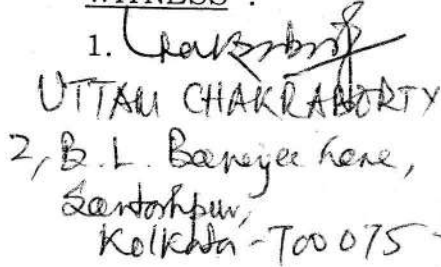 WITNESS :
1. Chakraborty
UTTAM CHAKRABORTY
2, B. L. Banerjee Lane,
Santoshpur,
Kolkata - 700075 -